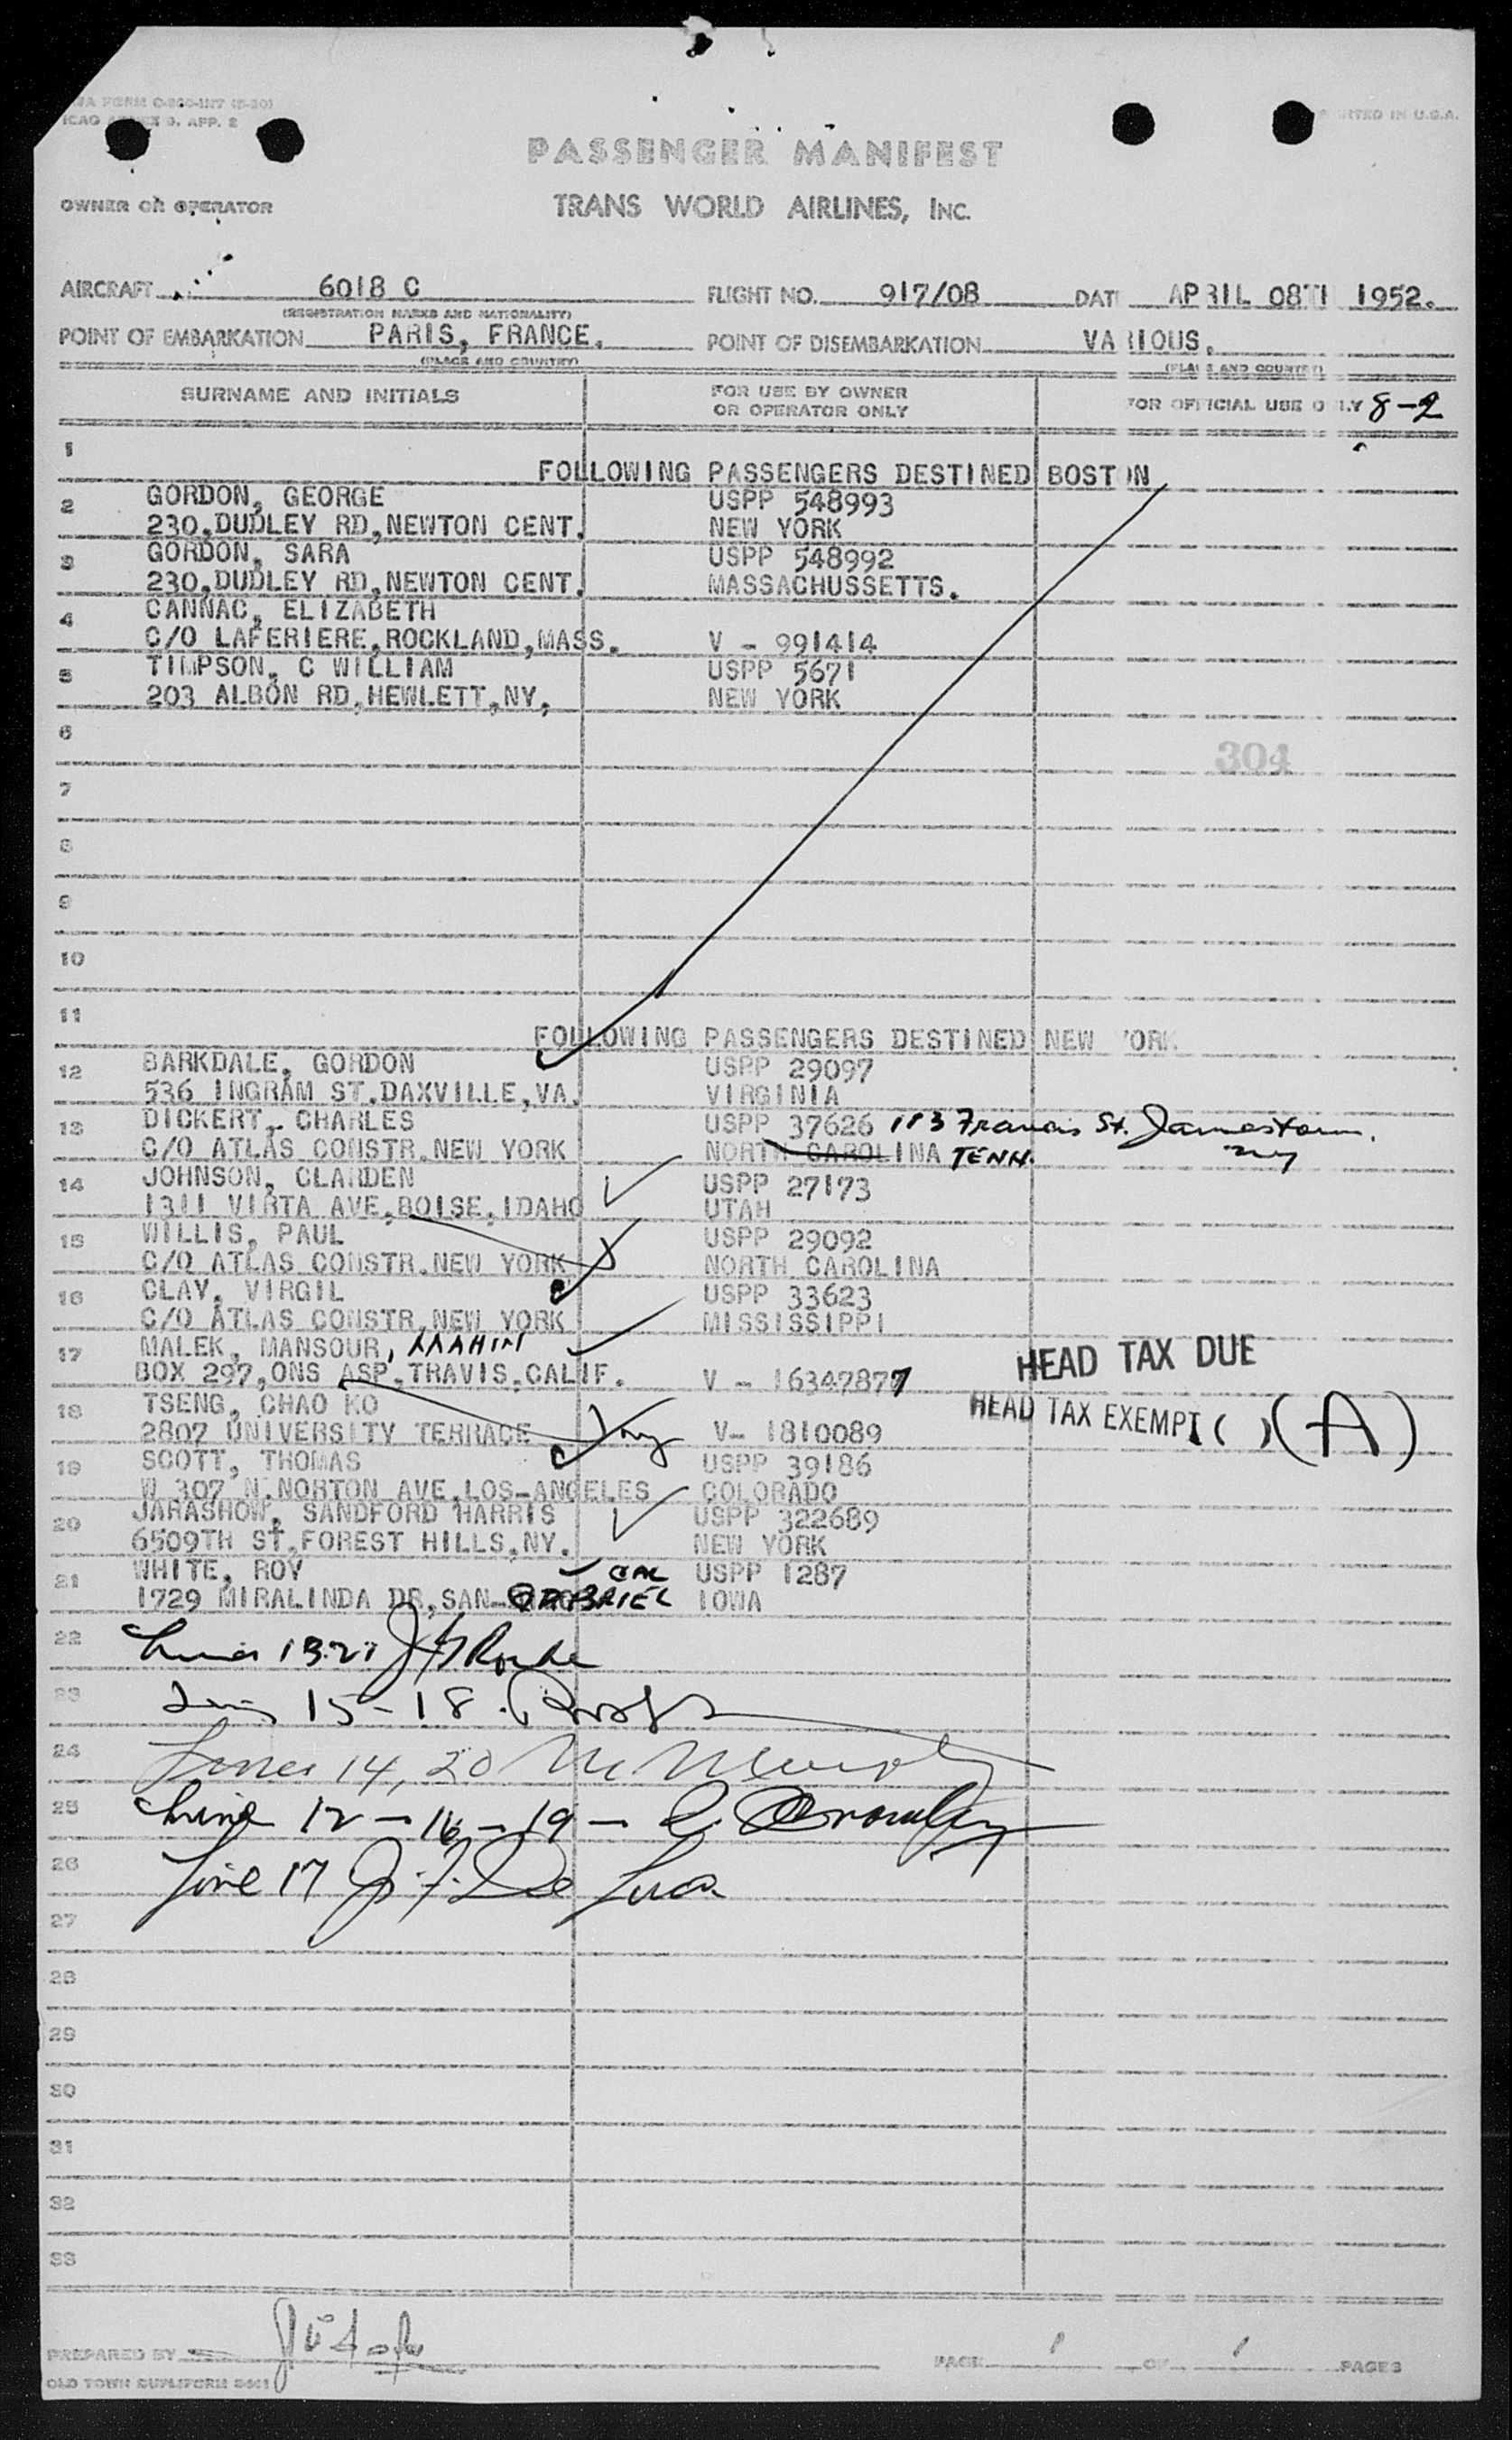 TWA FORM
ICAO ANNEX 9, APP. 2
PRINTED IN U.S.A.
PASSENGER MANIFEST
OWNER OR OPERATOR
TRANS WORLD AIRLINES, INC.
AIRCRAFT 6018 C FLIGHT NO. 917/08 DATE APRIL 08TH 1952.
(REGISTRATION MARKS AND NATIONALITY)
POINT OF EMBARKATION PARIS, FRANCE. POINT OF DISEMBARKATION VARIOUS.
(PLACE AND COUNTRY) (PLACE AND COUNTRY)
SURNAME AND INITIALS FOR USE BY OWNER OR OPERATOR ONLY FOR OFFICIAL USE ONLY 8-2
1
FOLLOWING PASSENGERS DESTINED BOSTON
2 GORDON, GEORGE USPP 548993
230,DUDLEY RD,NEWTON CENT. NEW YORK
3 GORDON, SARA USPP 548992
230,DUDLEY RD,NEWTON CENT. MASSACHUSSETTS.
4 CANNAC, ELIZABETH
C/O LAFERIERE,ROCKLAND,MASS. V - 991414
5 TIMPSON, C WILLIAM USPP 5671
203 ALBON RD,HEWLETT,NY, NEW YORK
6
304
7
8
9
10
11
FOLLOWING PASSENGERS DESTINED NEW YORK
12 BARKDALE, GORDON USPP 29097
536 INGRAM ST.DAXVILLE,VA. VIRGINIA
13 DICKERT, CHARLES USPP 37626 113 Francis St. Jamestown,
C/O ATLAS CONSTR.NEW YORK NORTH CAROLINA TENN. NY
14 JOHNSON, CLARDEN USPP 27173
1311 VIRTA AVE,BOISE,IDAHO UTAH
15 WILLIS, PAUL USPP 29092
C/O ATLAS CONSTR.NEW YORK NORTH CAROLINA
16 CLAY, VIRGIL USPP 33623
C/O ATLAS CONSTR.NEW YORK MISSISSIPPI
17 MALEK, MANSOUR,
BOX 297,ONS ASP,TRAVIS,CALIF. V - 16347877
HEAD TAX DUE
18 TSENG, CHAO KO
2807 UNIVERSITY TERRACE V- 1810089
HEAD TAX EXEMPT ( ) (A)
19 SCOTT, THOMAS USPP 39186
W 307 N.NORTON AVE.LOS-ANGELES COLORADO
20 JARASHOW, SANDFORD HARRIS USPP 322689
6509TH ST.FOREST HILLS,NY. NEW YORK
21 WHITE, ROY CAL USPP 1287
1729 MIRALINDA DR,SAN- GABRIEL IOWA
22 Lines 13-21
23 Lines 15-18
24 Lines 14, 20
25 Line 12 - 16 - 19 -
26 Line 17 J. F. De Luca
27
28
29
30
31
32
33
PREPARED BY PAGE 1 OF 1 PAGES
OLD TOWN DUPLIFORM